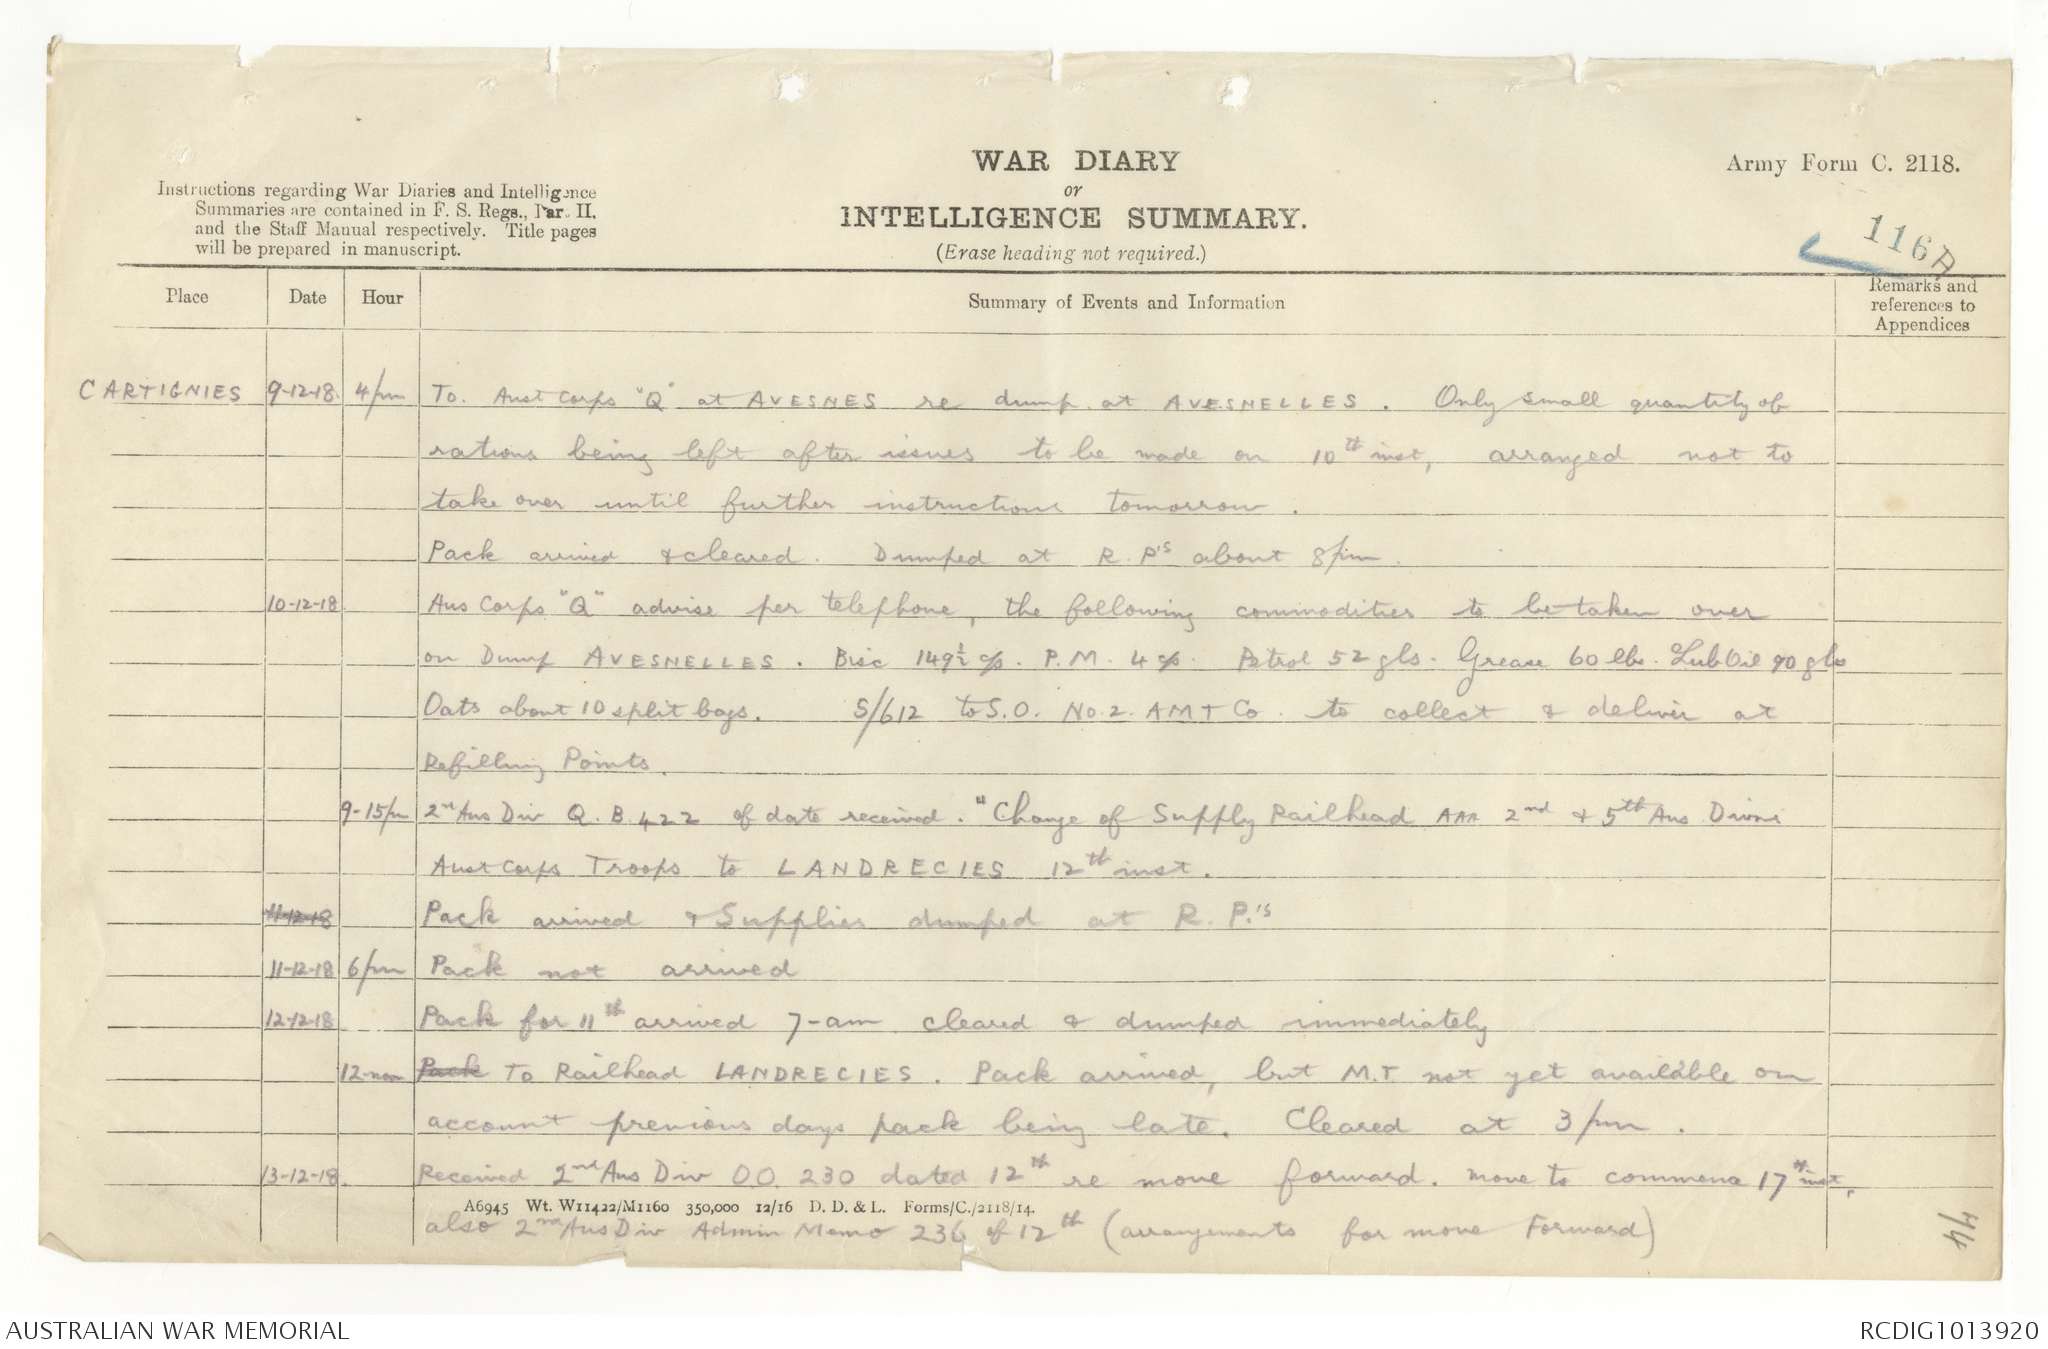 WAR DIARY
or
INTELLIGENCE SUMMARY.
(Erase heading not required.)
Army Form C. 2118.
116A
Instructions regarding War Diaries and Intelligence
Summaries are contained in F. S. Regs., Part II.
and the Staff Manual respectively. Title pages
will be prepared in manuscript.
Place Date Hour Summary of Events and Information Remarks and references to Appendices
CARTIGNIES 9-12-18 4pm To. Aust Corps "Q" at AVESNES re dump at AVESNELLES. Only small quantity of
rations being left after issues to be made on 10th inst, arranged not to
take over until further instructions tomorrow.
Pack arrived & cleared. Dumped at R.P's about 8pm.
10-12-18 Aus Corps "Q" advise per telephone, the following commodities to be taken over
on Dump AVESNELLES. Bisc 149½ c/s. P.M. 4 c/s. Petrol 52 gls. Grease 60 lbs. Lub Oil 90 gls
Oats about 10 split bags. S/612 to S.O. No.2. AMT Co. to collect & deliver at
Refilling Points.
9-15pm 2nd Aus Div Q.B.422 of date received. "Change of Supply Railhead AAA 2nd & 5th Aus Divns
Aust Corps Troops to LANDRECIES 12th inst.
11-12-18 Pack arrived & Supplies dumped at R.P.'s
11-12-18 6pm Pack not arrived
12-12-18 Pack for 11th arrived 7-am cleared & dumped immediately
12-noon Pack To Railhead LANDRECIES. Pack arrived, but M.T not yet available on
account previous days pack being late. Cleared at 3pm.
13-12-18. Received 2nd Aus Div O.O. 230 dated 12th re move forward. Move to commence 17th inst,
A6945 Wt. W11422/M1160 350,000 12/16 D. D. & L. Forms/C./2118/14.
also 2nd Aus Div Admin Memo 236 of 12th (arrangements for move Forward)
AUSTRALIAN WAR MEMORIAL
RCDIG1013920